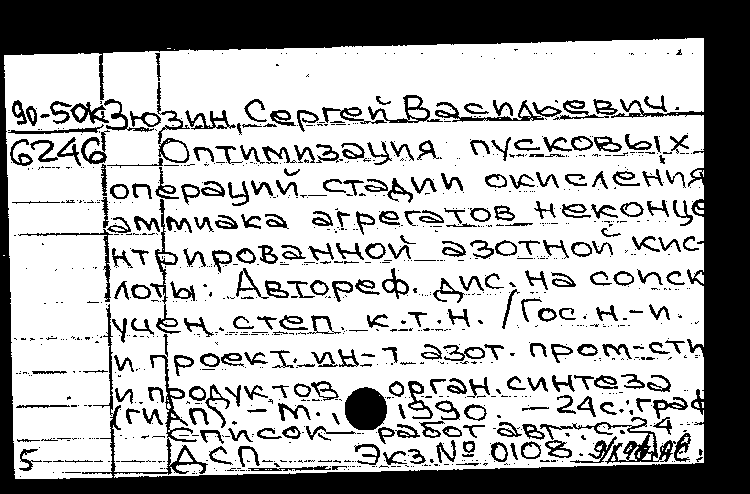 90-50к Зюзин, Сергей Васильевич.
6246 Оптимизация пусковых
операций стадии окисления
аммиака агрегатов неконце
нтрированной азотной кис-
лоты: Автореф. дис. на соиск
учен. степ. к.т.н. /Гос. н.-и.
и проект. ин-т азот. пром-сти
и продуктов орган. синтеза
(ГИАП). – М., 1990. – 24с.: граф
Список работ авт.: с.24
5 ДСП. Экз.№ 0108.